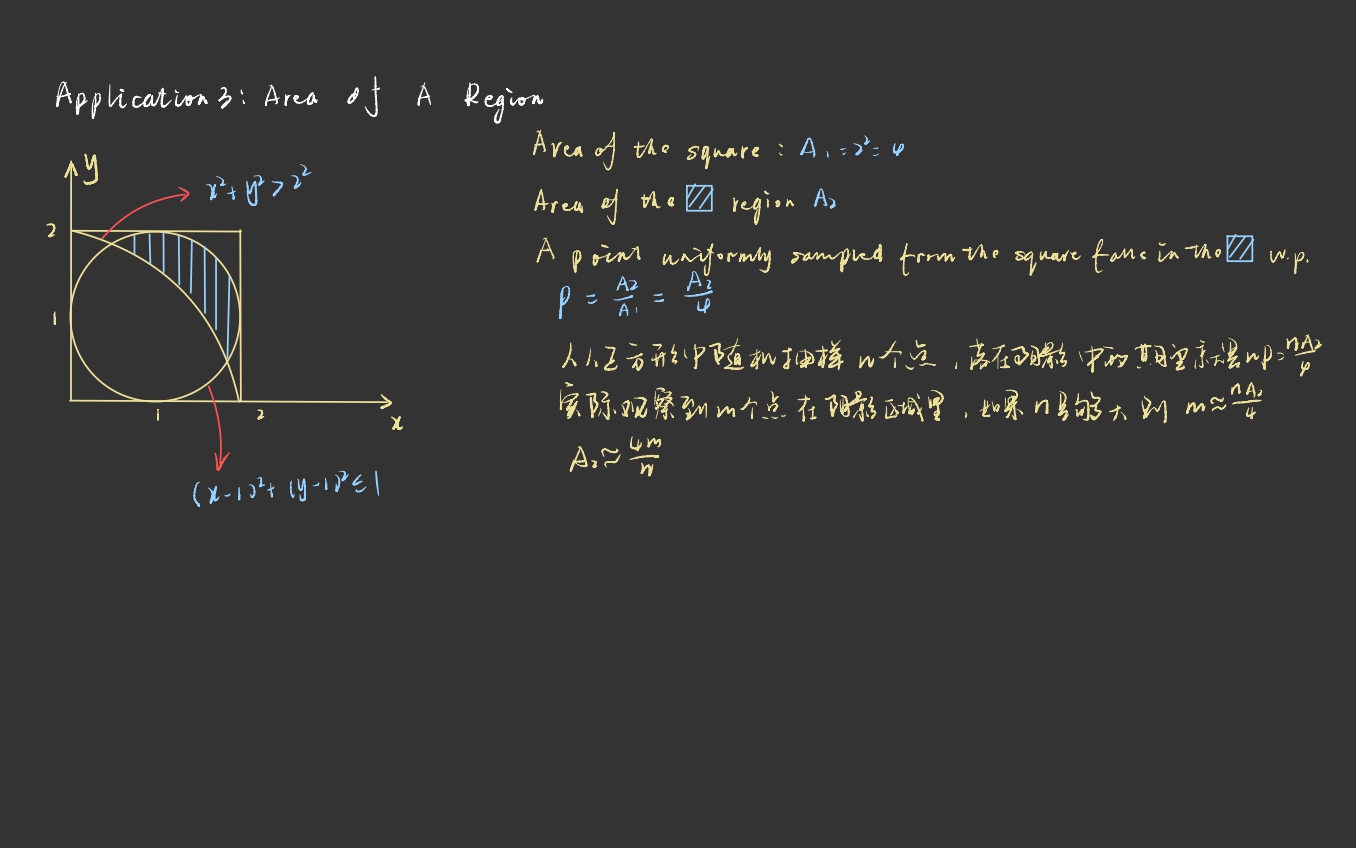 Application 3: Area of A Region
y
x²+ y² > 2²
2
1
1
2
x
(x-1)²+ (y-1)² ≤ 1
Area of the square : A₁ = 2² = 4
Area of the region A₂
A point uniformly sampled from the square falls in the w.p.
p = A₂/A₁ = A₂/4
从正方形中随机抽样 n个点，落在阴影中的期望就是np=nA₂/4
实际观察到m个点在阴影区域里，如果n足够大则 m≈nA₂/4
A₂≈4m/n